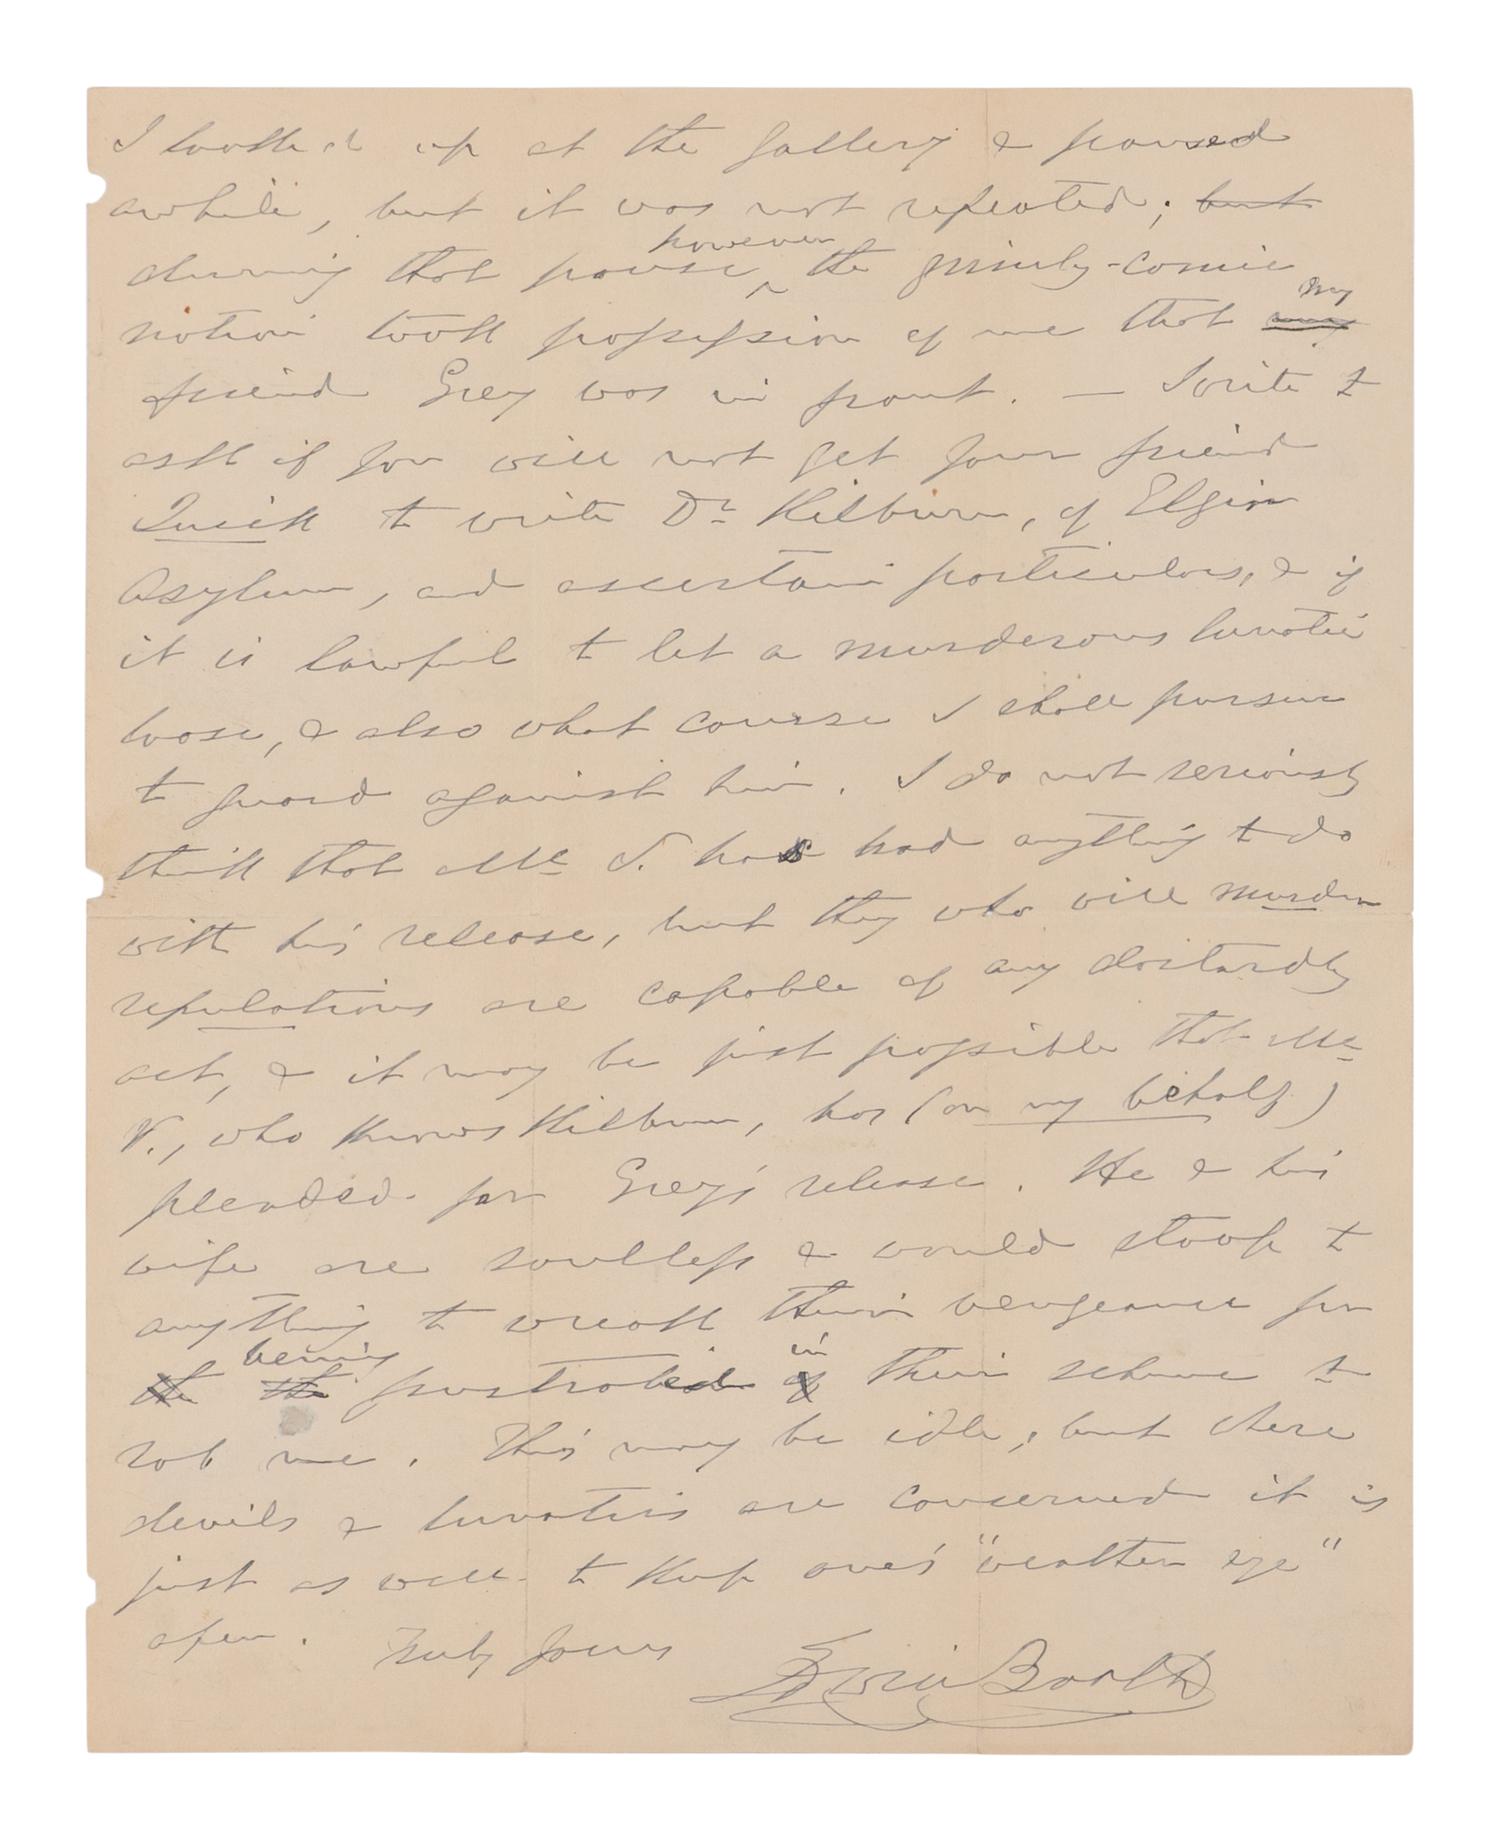 I looked up at the gallery & paused
awhile, but it was not repeated; but
during that pause however the grimly-comic
notion took possession of me that my my
friend Grey was in front. — I write to
ask if you will not get your friend
Quick to write Dr Kilburn, of Elgin
Asylum, and ascertain particulars, & if
it is lawful to let a murderous lunatic
loose, & also what course I shall pursue
to guard against him. I do not seriously
think that Mc V. has had anything to do
with his release, but they who will murder
reputations are capable of any dastardly
act, & it may be just possible that Mc
V., who knows Kilburn, has (on my behalf)
pleaded for Grey's release. He & his
wife are soulless & would stoop to
anything to wreak their vengeance for
the the being frustrated of in their scheme to
rob me. This may be idle, but where
devils & lunatics are concerned it is
just as well to keep one's "weather eye"
open. Truly Yours
Edwin Booth